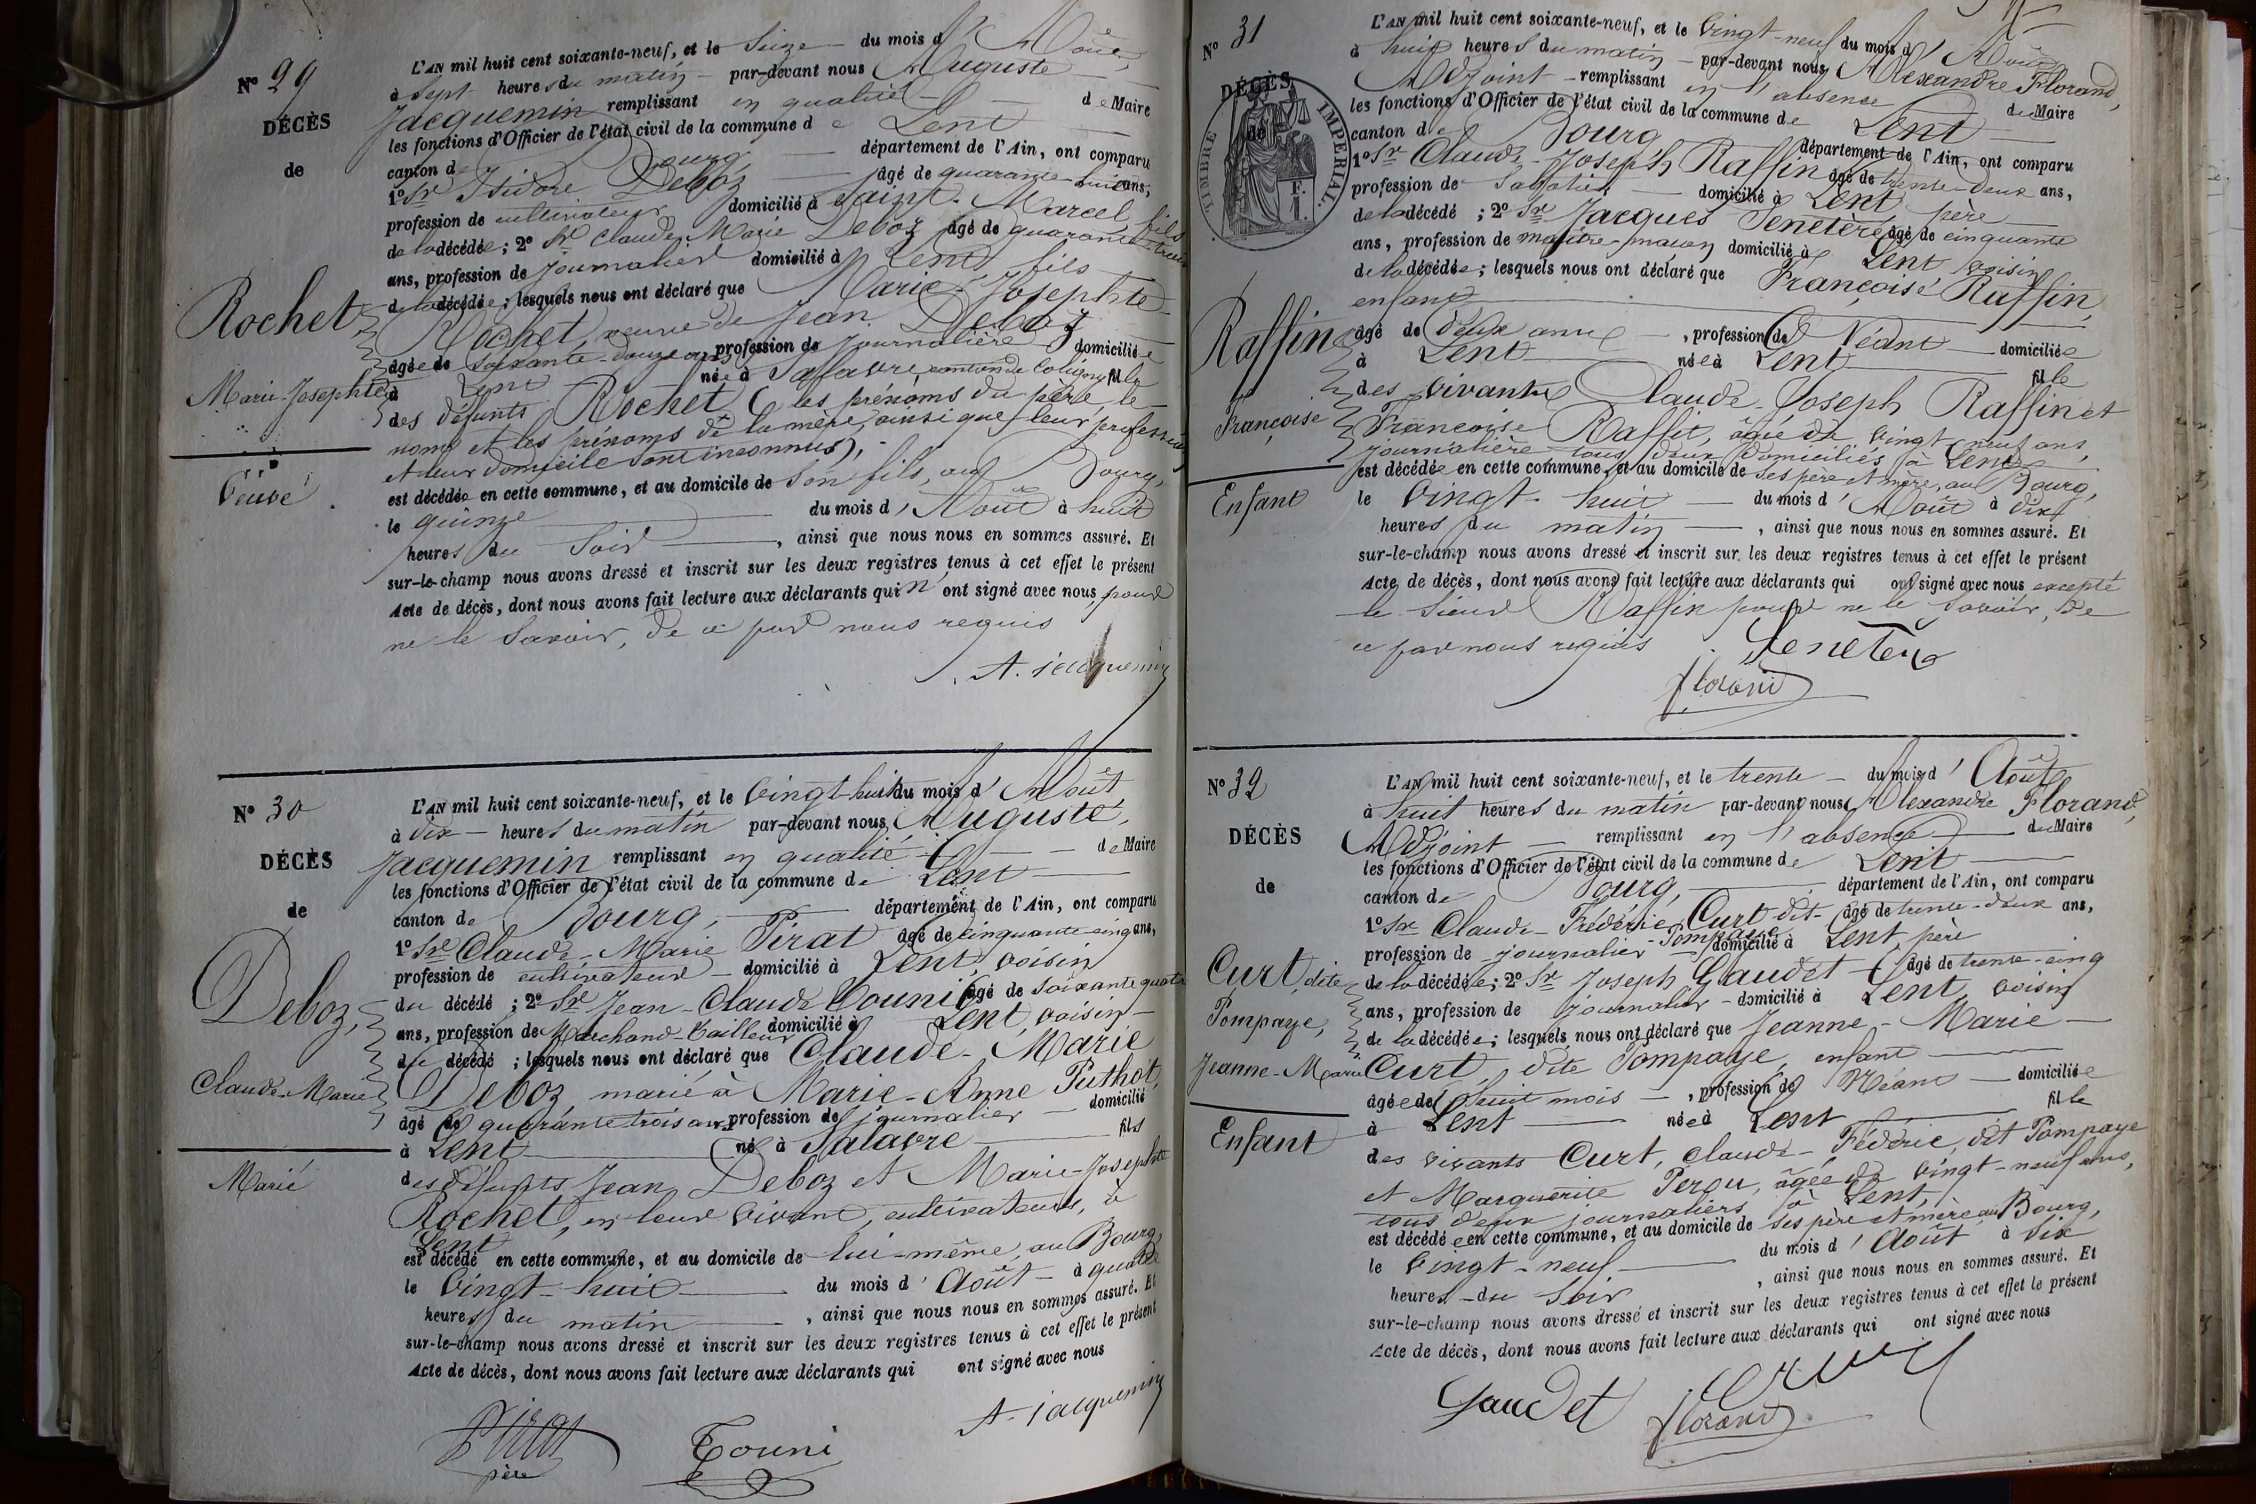 N° 29
DÉCÈS
de
Rochet
Marie-Josephte
Veuve
L'AN mil huit cent soixante-neuf, et le Seize du mois d'Août
à Sept heures du matin par-devant nous Auguste
Jacquemin remplissant en qualité de Maire
les fonctions d'Officier de l'état civil de la commune de Lent
canton de Bourg département de l'Ain, ont comparu
1° Sr Isidore Deboz âgé de quarante-huit ans,
profession de cultivateur domicilié à Saint-Marcel, fils
de la décédée ; 2° Sr Claude-Marie Deboz âgé de quarante-trois
ans, profession de journalier domicilié à Lent, fils
de la décédée ; lesquels nous ont déclaré que Marie-Josephte
Rochet, veuve de Jean Deboz
âgée de soixante-douze ans profession de journalière domiciliée
à Lent née à Salavre canton de Coligny fille
des défunts Rochet (les prénoms du père, le
nom et les prénoms de la mère, ainsi que leur profession
et leur domicile sont inconnus),
est décédée en cette commune, et au domicile de son fils, au Bourg,
le quinze du mois d'Août à huit
heures du soir, ainsi que nous nous en sommes assuré. Et
sur-le-champ nous avons dressé et inscrit sur les deux registres tenus à cet effet le présent
Acte de décès, dont nous avons fait lecture aux déclarants qui n'ont signé avec nous, pour
ne le savoir, de ce par nous requis
A. jacquemin
N° 30
DÉCÈS
de
Deboz,
Claude-Marie
Marié
L'AN mil huit cent soixante-neuf, et le Vingt-huit du mois d'Août
à dix heures du matin par-devant nous Auguste
Jacquemin remplissant en qualité de Maire
les fonctions d'Officier de l'état civil de la commune de Lent
canton de Bourg, département de l'Ain, ont comparu
1° Sr Claude-Marie Pirat âgé de cinquante-cinq ans,
profession de cultivateur domicilié à Lent, voisin
du décédé ; 2° Sr Jean-Claude Touni âgé de soixante quatre
ans, profession de Marchand-Tailleur domicilié à Lent, voisin
du décédé ; lesquels nous ont déclaré que Claude-Marie
Deboz marié à Marie-Anne Puthot,
âgé de quarante trois ans profession de journalier domicilié
à Lent né à Salavre fils
des défunts Jean Deboz et Marie-Josephte
Rochet, en leur vivant, cultivateurs, à
Lent
est décédé en cette commune, et au domicile de lui-même, au Bourg,
le Vingt-huit du mois d'Août à quatre
heures du matin, ainsi que nous nous en sommes assuré. Et
sur-le-champ nous avons dressé et inscrit sur les deux registres tenus à cet effet le présent
Acte de décès, dont nous avons fait lecture aux déclarants qui ont signé avec nous
A. jacquemin
Pirat
père
Touni
N° 31
DÉCÈS
de
TIMBRE IMPERIAL
Raffin
Françoise
Enfant
L'AN mil huit cent soixante-neuf, et le Vingt-neuf du mois d'Août
à huit heures du matin par-devant nous Alexandre Florand,
Adjoint remplissant en l'absence du Maire
les fonctions d'Officier de l'état civil de la commune de Lent
canton de Bourg département de l'Ain, ont comparu
1° Sr Claude-Joseph Raffin âgé de trente-deux ans,
profession de Sabotier domicilié à Lent, père
de la décédé ; 2° Sr Jacques Senetère âgé de cinquante
ans, profession de maître-maçon domicilié à Lent voisin
de la décédée ; lesquels nous ont déclaré que Françoise Raffin,
enfant
âgé de deux ans, profession de Néant domiciliée
à Lent née à Lent fille
des vivants Claude-Joseph Raffin et
Françoise Raffit, âgée de vingt-neuf ans,
journalière, tous deux domiciliés à Lent
est décédée en cette commune, et au domicile de ses père et mère, au Bourg,
le Vingt-huit du mois d'Août à dix
heures du matin, ainsi que nous nous en sommes assuré. Et
sur-le-champ nous avons dressé et inscrit sur les deux registres tenus à cet effet le présent
Acte de décès, dont nous avons fait lecture aux déclarants qui ont signé avec nous excepté
le Sieur Raffin pour ne le savoir, de
ce par nous requis
Senetere
florand
N° 32
DÉCÈS
de
Curt, dite
Pompaye,
Jeanne-Marie
Enfant
L'AN mil huit cent soixante-neuf, et le trente du mois d'Août
à huit heures du matin par-devant nous Alexandre Florand,
Adjoint remplissant en l'absence du Maire
les fonctions d'Officier de l'état civil de la commune de Lent
canton de Bourg, département de l'Ain, ont comparu
1° Sr Claude-Frédéric Curt dit Pompaye âgé de trente-deux ans,
profession de journalier domicilié à Lent, père
de la décédée ; 2° Sr Joseph Gaudet âgé de trente-cinq
ans, profession de journalier domicilié à Lent, voisin
de la décédée ; lesquels nous ont déclaré que Jeanne-Marie
Curt, dite Pompaye, enfant
âgée de huit mois, profession de Néant domiciliée
à Lent née à Lent fille
des vivants Curt, Claude-Fédéric, dit Pompaye
et Marguerite Perou, âgée de vingt-neuf ans,
tous deux journaliers à Lent,
est décédée en cette commune, et au domicile de ses père et mère au Bourg,
le Vingt-neuf du mois d'Août à Six
heures du Soir, ainsi que nous nous en sommes assuré. Et
sur-le-champ nous avons dressé et inscrit sur les deux registres tenus à cet effet le présent
Acte de décès, dont nous avons fait lecture aux déclarants qui ont signé avec nous
Gaudet
Curt
florand